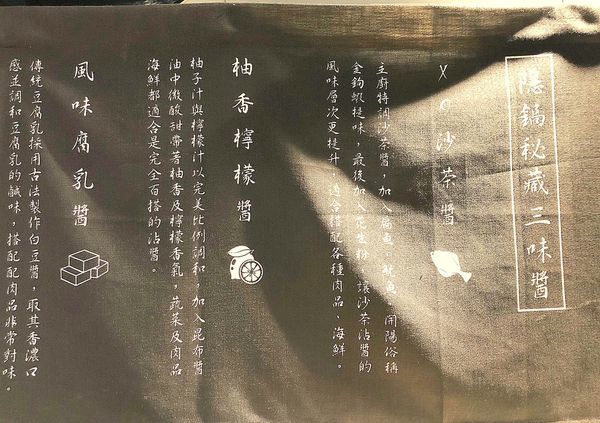 隱鍋秘藏三味醬
X.O沙茶醬
主廚特調沙茶醬，加入扁魚、魷魚、開陽俗稱
金鉤蝦提味，最後加入花生粉，讓沙茶沾醬的
風味層次更提升，適合搭配各種肉品、海鮮。
柚香檸檬醬
柚子汁與檸檬汁以完美比例調和，加入昆布醬
油中微酸甜帶著柚香及檸檬香氣，蔬菜及肉品
海鮮都適合是完全百搭的沾醬。
風味腐乳醬
傳統豆腐乳採用古法製作白豆醬，取其香濃口
感並調和豆腐乳的鹹味，搭配配肉品非常對味。